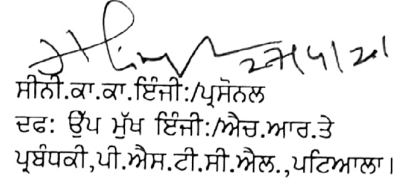 27/4/21
ਸੀਨੀ.ਕਾ.ਕਾ.ਇੰਜੀ:/ਪ੍ਰਸੋਨਲ
ਦਫ: ਉੱਪ ਮੁੱਖ ਇੰਜੀ:/ਐਚ.ਆਰ.ਤੇ
ਪ੍ਰਬੰਧਕੀ,ਪੀ.ਐਸ.ਟੀ.ਸੀ.ਐਲ.,ਪਟਿਆਲਾ।